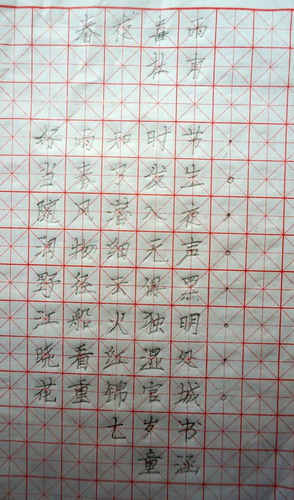 春夜喜雨
杜甫
好雨知时节，
当春乃发生。
随风潜入夜，
润物细无声。
野径云俱黑，
江船火独明。
晓看红湿处，
花重锦官城。
七岁书
童涵